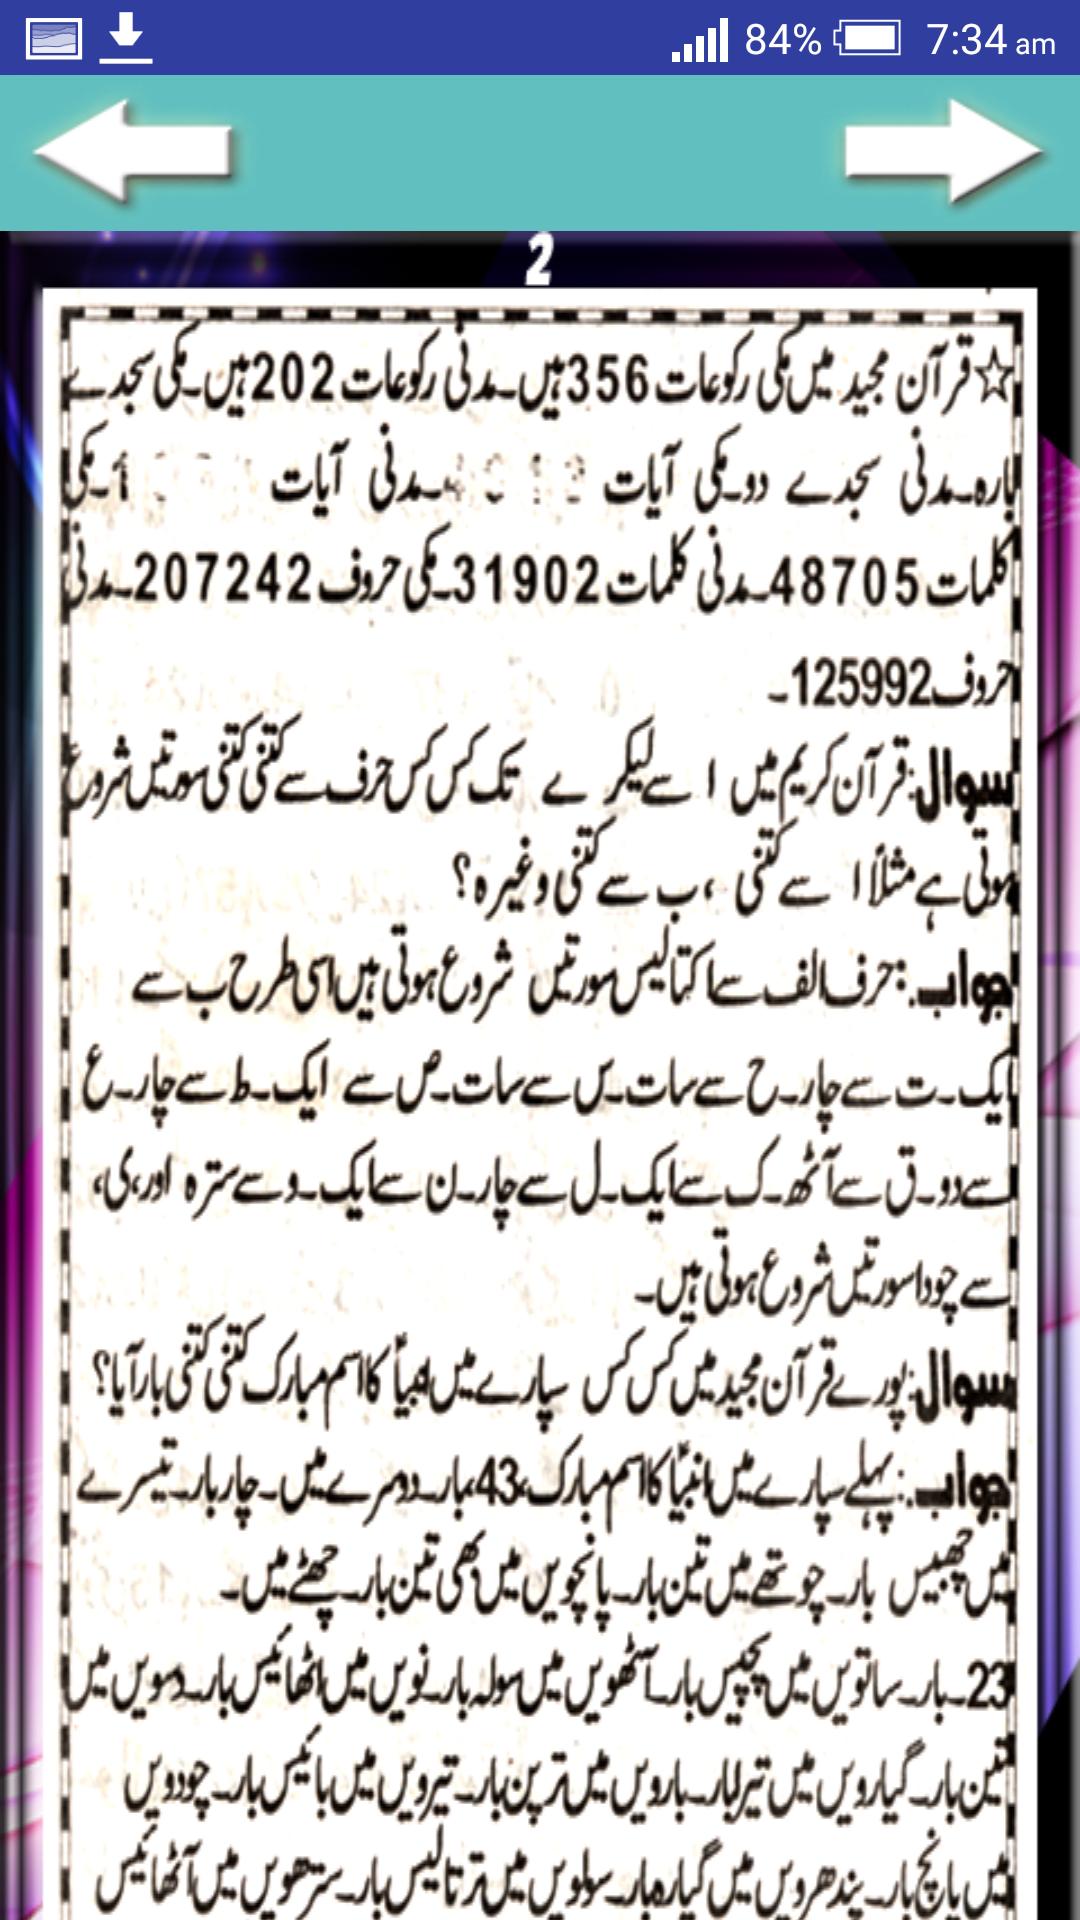 84% 7:34 am
2
☆قرآن مجید میں مکی رکوعات 356 ہیں۔مدنی رکوعات 202 ہیں۔مکی سجدے
بارہ۔مدنی سجدے دو۔مکی آیات ۔مدنی آیات ۔مکی
کلمات 48705۔مدنی کلمات 31902۔مکی حروف 207242۔مدنی
حروف 125992۔
سوال:قرآن کریم میں ا سے لیکر ے تک کس کس حرف سے کتنی کتنی سورتیں شروع
ہوتی ہے مثلاً ا سے کتنی ،ب سے کتنی وغیرہ؟
جواب:حرف الف سے اکتالیس سورتیں شروع ہوتی ہیں اسی طرح ب سے
ایک۔ت سے چار۔ح سے سات۔س سے سات۔ص سے ایک۔ط سے چار۔ع
سے دو۔ق سے آٹھ۔ک سے ایک۔ل سے چار۔ن سے ایک۔و سے سترہ اور،ی،
سے چودا سورتیں شروع ہوتی ہیں۔
سوال:پورے قرآن مجید میں کس کس سپارے میں انبیاؑ کا اسم مبارک کتنی کتنی بار آیا؟
جواب:پہلے سپارے میں انبیاؑ کا اسم مبارک،43،بار۔دوسرے میں۔چار بار۔تیسرے
میں چھبیس بار۔چوتھے میں تین بار۔پانچویں میں بھی تین بار۔چھٹے میں۔
23۔بار۔ساتویں میں پچیس بار۔آٹھویں میں سولہ بار۔نویں میں اٹھائیس بار۔دسویں میں
تین بار۔گیارویں میں تیرا بار۔بارویں میں ترپن بار۔تیرویں میں بائیس بار۔چودویں
میں پانچ بار۔پندھرویں میں گیارہ بار۔سولویں میں ترتالیس بار۔سترھویں میں اٹھائیس